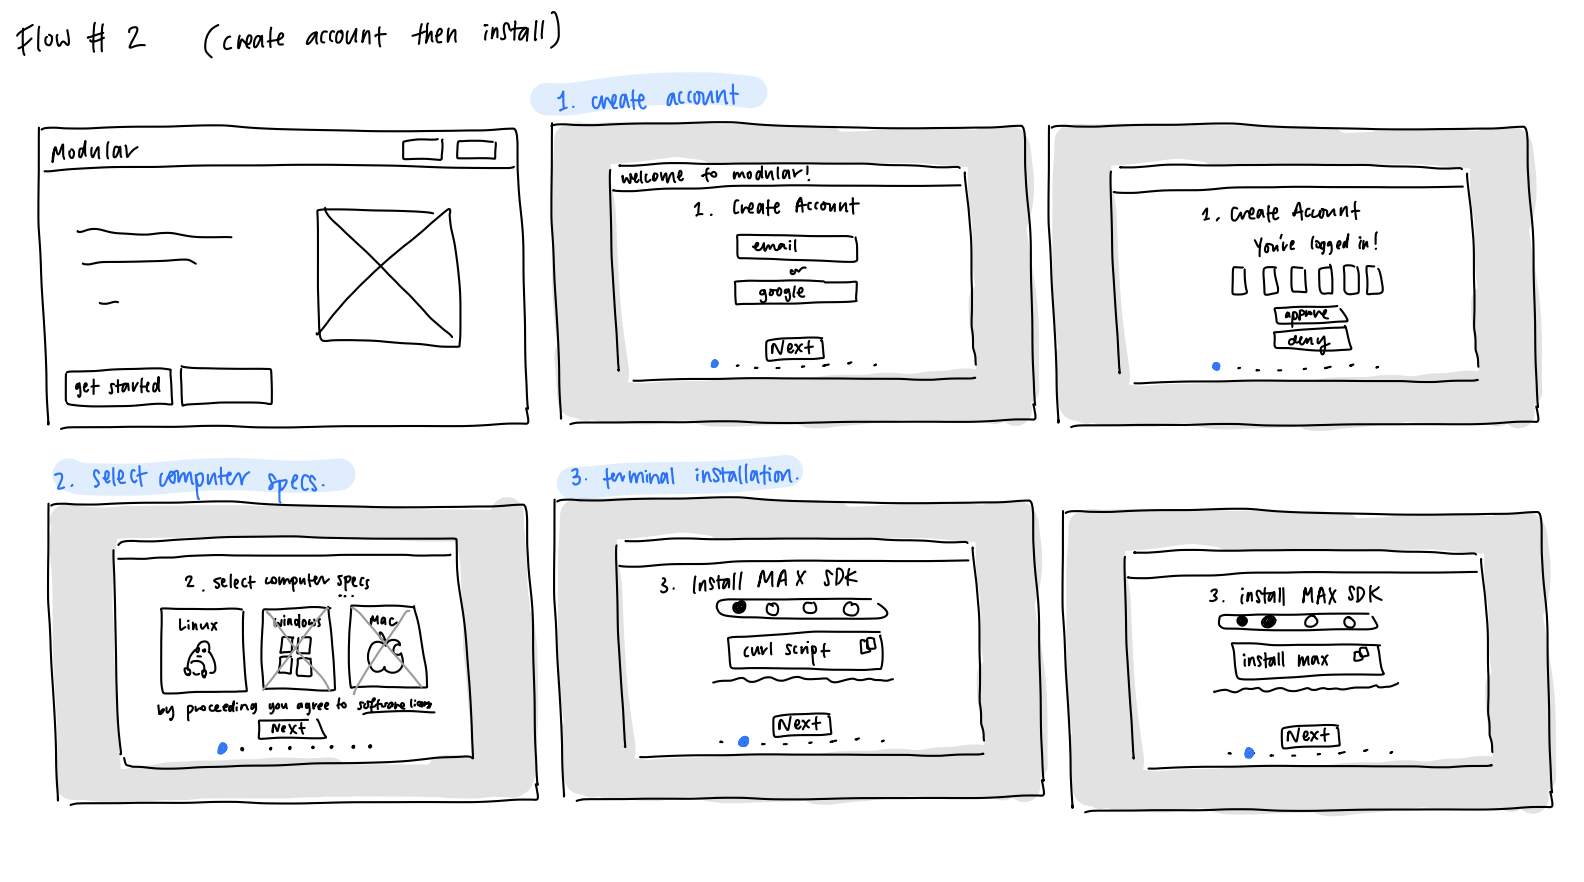 Flow # 2 (create account then install)
1. create account
Modular
get started
welcome to modular!
1. Create Account
email
or
google
Next
1. Create Account
You've logged in!
approve
deny
2. select computer specs.
2. select computer specs
...
Linux
Windows
Mac
by proceeding you agree to software
Next
3. terminal installation.
3. Install MAX SDK
curl script
Next
3. install MAX SDK
install max
Next